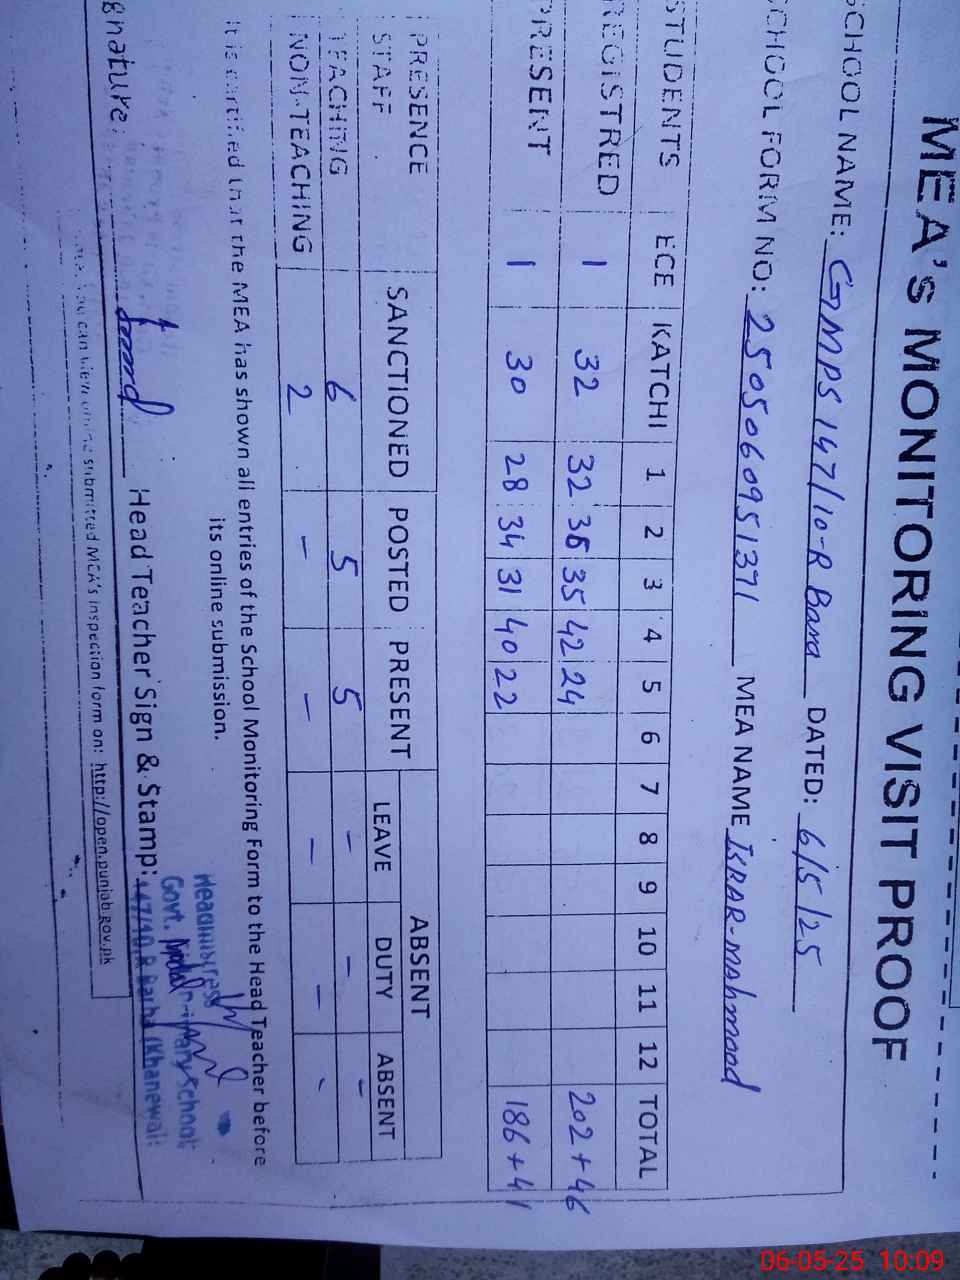 MEA's MONITORING VISIT PROOF
SCHOOL NAME: GMPS 147/10-R Bara DATED: 6/5/25
SCHOOL FORM NO: 2505060951371 MEA NAME ISRAR-mahmood
STUDENTS ECE KATCHI 1 2 3 4 5 6 7 8 9 10 11 12 TOTAL
REGISTRED 1 32 32 36 35 42 24 202+46
PRESENT 1 30 28 34 31 40 22 186+41
PRESENCE STAFF SANCTIONED POSTED PRESENT ABSENT
LEAVE DUTY ABSENT
TEACHING 6 5 5 - - -
NON-TEACHING 2 - - - - -
It is certified that the MEA has shown all entries of the School Monitoring Form to the Head Teacher before
its online submission.
Headmistress
Govt. Primary School
147/10.R Barha (Khanewal)
gnature: Head Teacher Sign & Stamp:
You can view online submitted MEA's inspection form on: http://open.punjab.gov.pk
06-05-25 10:09